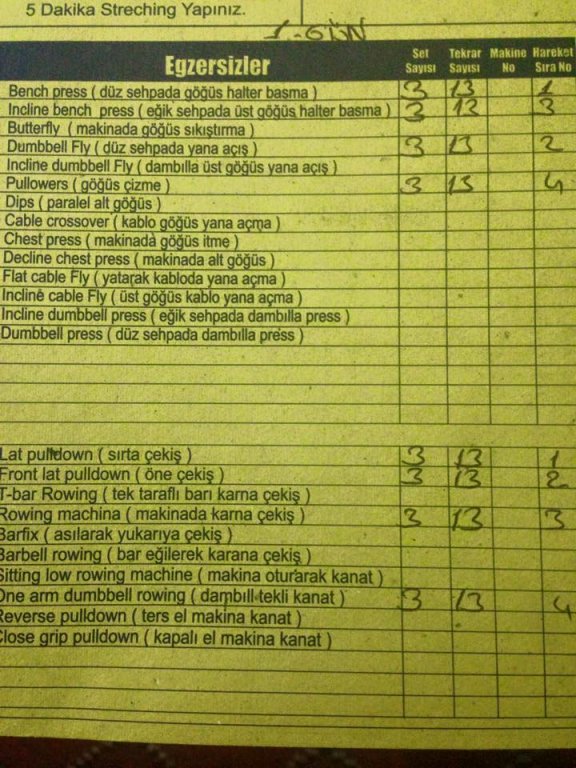 5 Dakika Streching Yapınız.
1.GÜN
Egzersizler Set Sayısı Tekrar Sayısı Makine No Hareket Sıra No
Bench press ( düz sehpada göğüs halter basma ) 3 13 1
Incline bench press ( eğik sehpada üst göğüs halter basma ) 3 13 3
Butterfly ( makinada göğüs sıkıştırma )
Dumbbell Fly ( düz sehpada yana açış ) 3 13 2
Incline dumbbell Fly ( dambılla üst göğüs yana açış )
Pullowers ( göğüs çizme ) 3 13 4
Dips ( paralel alt göğüs )
Cable crossover ( kablo göğüs yana açma )
Chest press ( makinada göğüs itme )
Decline chest press ( makinada alt göğüs )
Flat cable Fly ( yatarak kabloda yana açma )
Incline cable Fly ( üst göğüs kablo yana açma )
Incline dumbbell press ( eğik sehpada dambılla press )
Dumbbell press ( düz sehpada dambılla press )
Lat pulldown ( sırta çekiş ) 3 13 1
Front lat pulldown ( öne çekiş ) 3 13 2
T-bar Rowing ( tek taraflı barı karna çekiş )
Rowing machina ( makinada karna çekiş ) 3 13 3
Barfix ( asılarak yukarıya çekiş )
Barbell rowing ( bar eğilerek karana çekiş )
Sitting low rowing machine ( makina oturarak kanat )
One arm dumbbell rowing ( dambıll tekli kanat ) 3 13 4
Reverse pulldown ( ters el makina kanat )
Close grip pulldown ( kapalı el makina kanat )